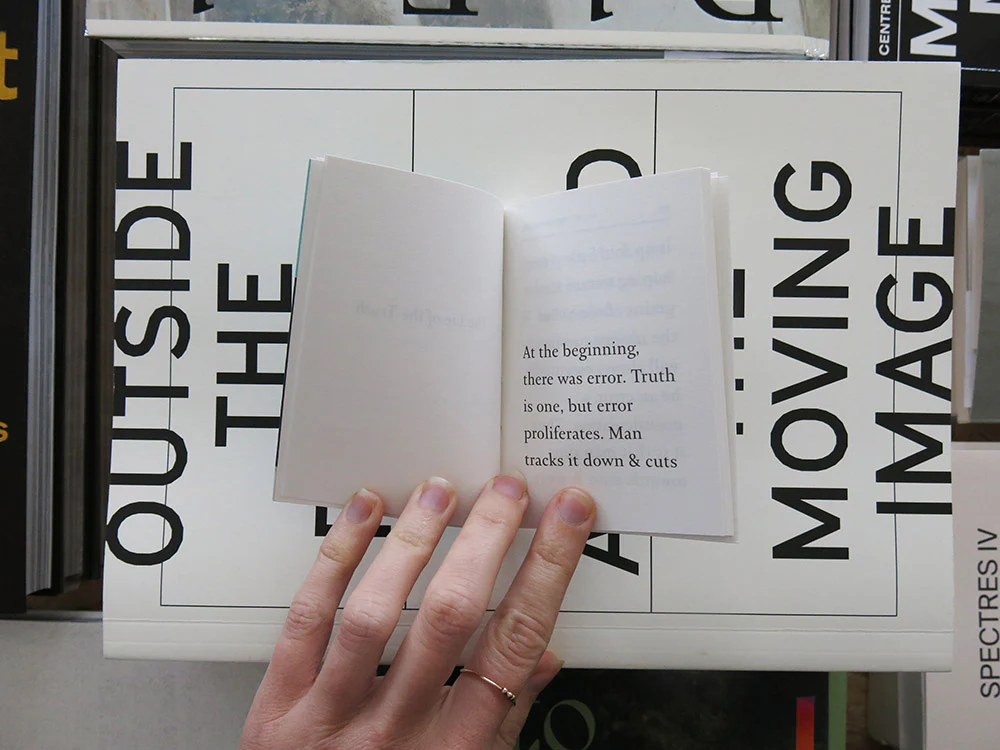 CENTRE
OUTSIDE
THE
MOVING
IMAGE
At the beginning,
there was error. Truth
is one, but error
proliferates. Man
tracks it down & cuts
SPECTRES IV